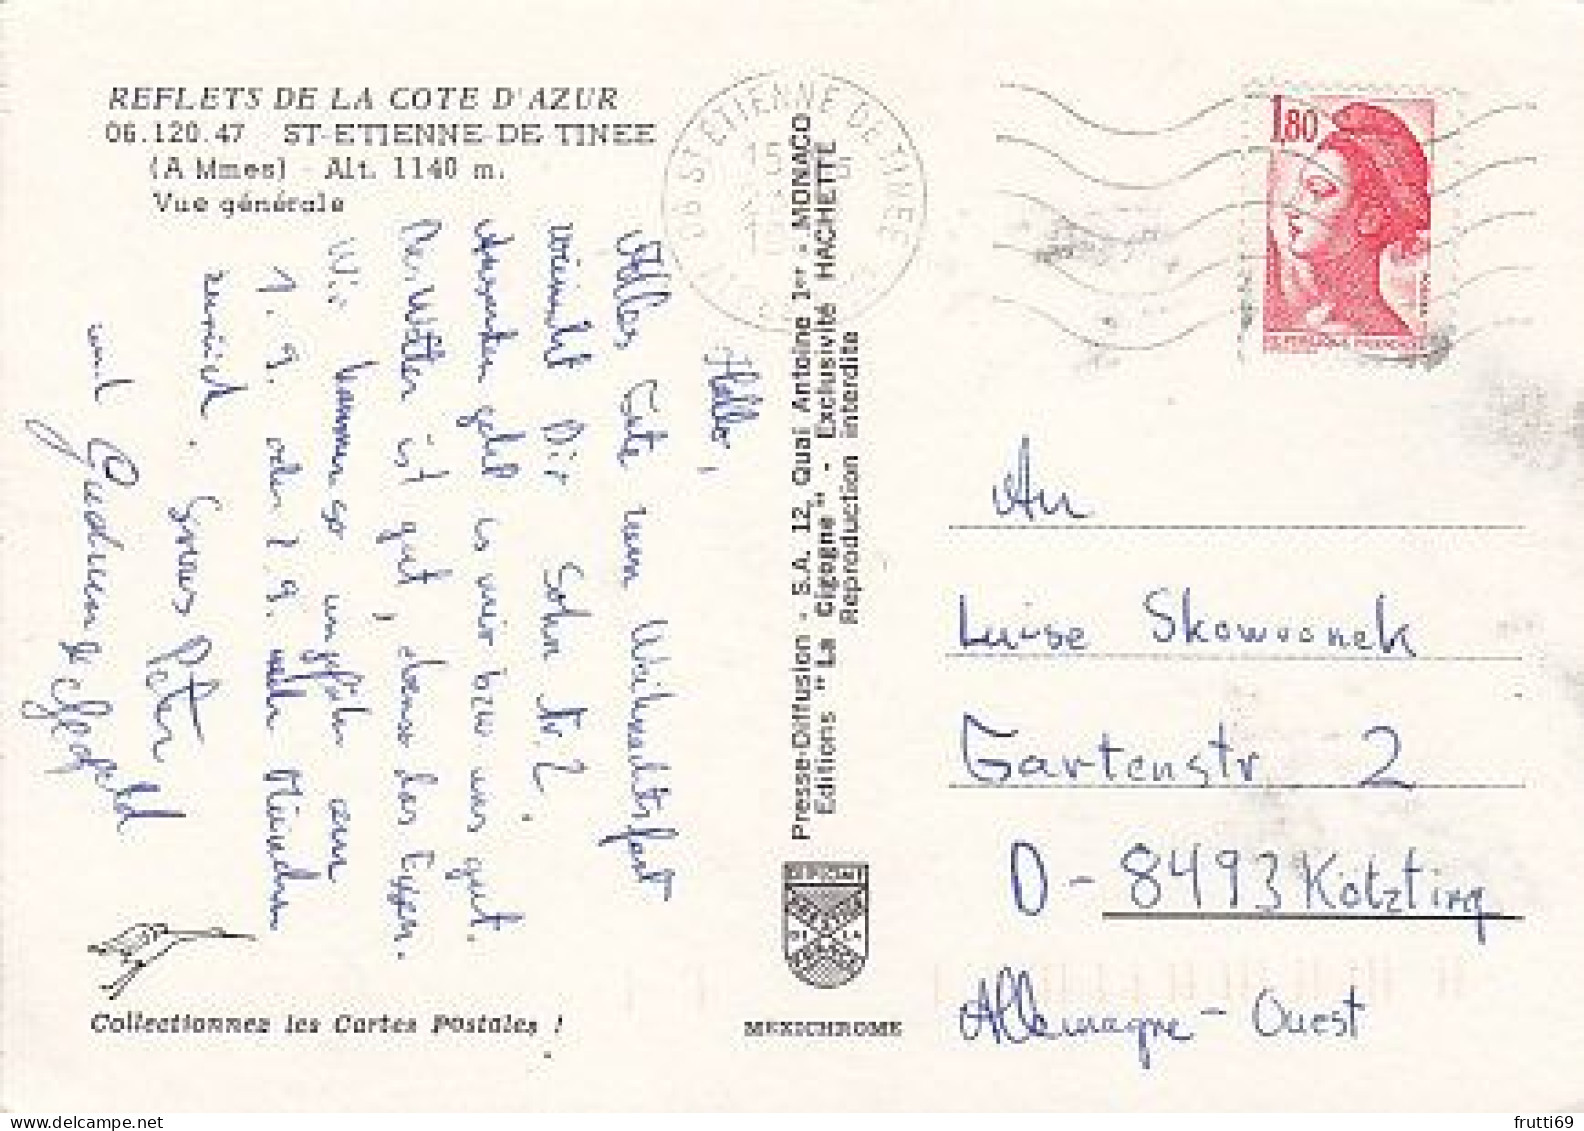 REFLETS DE LA COTE D'AZUR
06.120.47 ST-ETIENNE-DE-TINEE
(A Mmes) - Alt. 1140 m.
Vue générale
Hallo,
Alles Gute zum Weihnachtsfest
wünscht Dir Sohn Nr. 2.
Ansonsten geht es mir bzw uns gut.
Das Wetter ist gut, ebenso das Essen.
Wir kommen so ungefähr am
1. 9. oder 2. 9. nach München
zurück. Gruss Peter
und
Collectionnez les Cartes Postales !
Presse-Diffusion - S.A. 12, Quai Antoine 1er - MONACO
Editions "La Cigogne" - Exclusivité HACHETTE
Reproduction interdite
MEXICHROME
06 ST ETIENNE DE TINEE
15
1,80
REPUBLIQUE FRANCAISE
An
Luise Skowronek
Gartenstr 2
D-8493 Kötzting
Allemagne-Ouest
frutti69